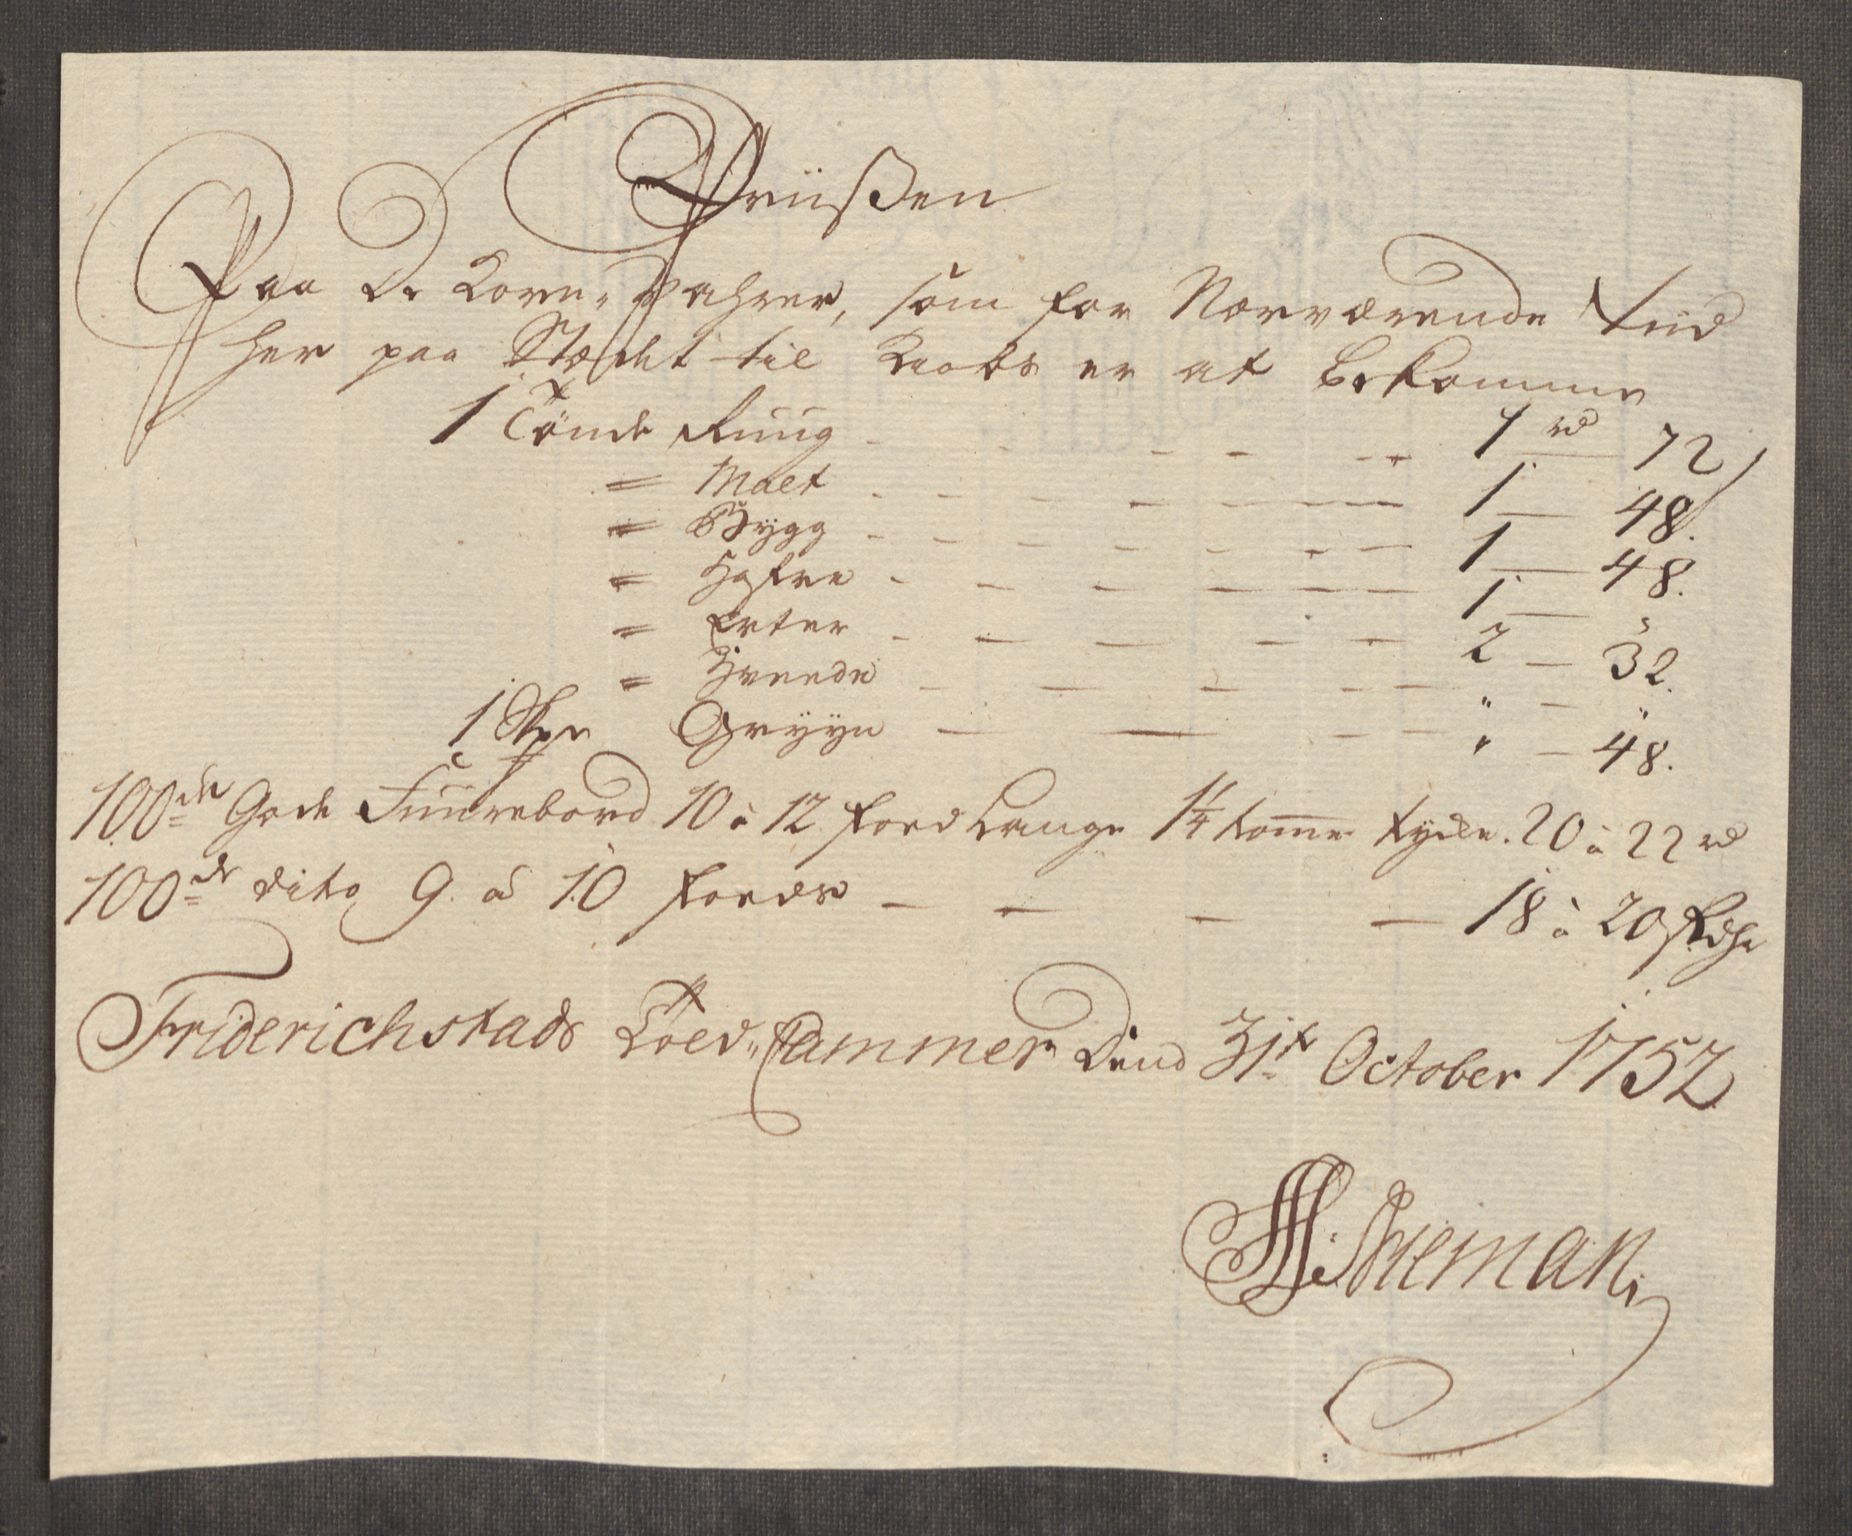 Priißen
Paa De Korn-Wahrer, som for Nærværende Tiid
her paa Stædet til Kiøbs er at bekomme
1 Tønde Ruug - - - - 1 rd 72
= Malt - - - - 1 - 48.
= Bygg - - - - 1 - 48.
= Hafre - - - - 1 - "
= Erter - - - - 2 - 32.
= Hveede - - - - " - "
1 Skpe Gryyn - - - - " - 48.
100de Gode Fuurebord 10 à 12 foed Lange 1¼ tomme tycke. 20 à 22 rd
100de dito 9. à 10 foeder - - - - 18 à 20 Rdhr
Friderichstads Toed-Cammer Dend 31t October 1752
Stieman